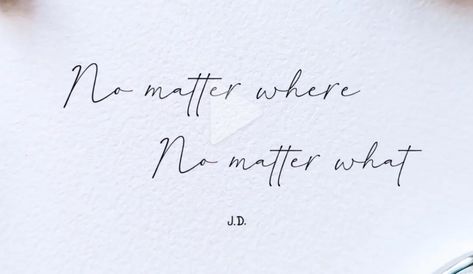 No matter where
No matter what
J.D.